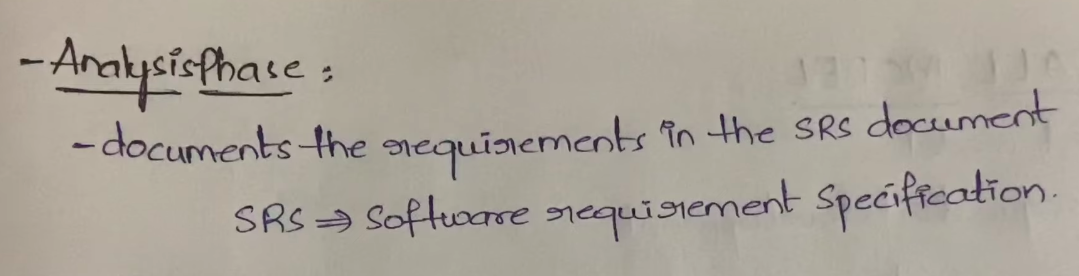 - Analysis Phase :
- documents the requirements in the SRS document
SRS ⇒ Software requirement Specification.